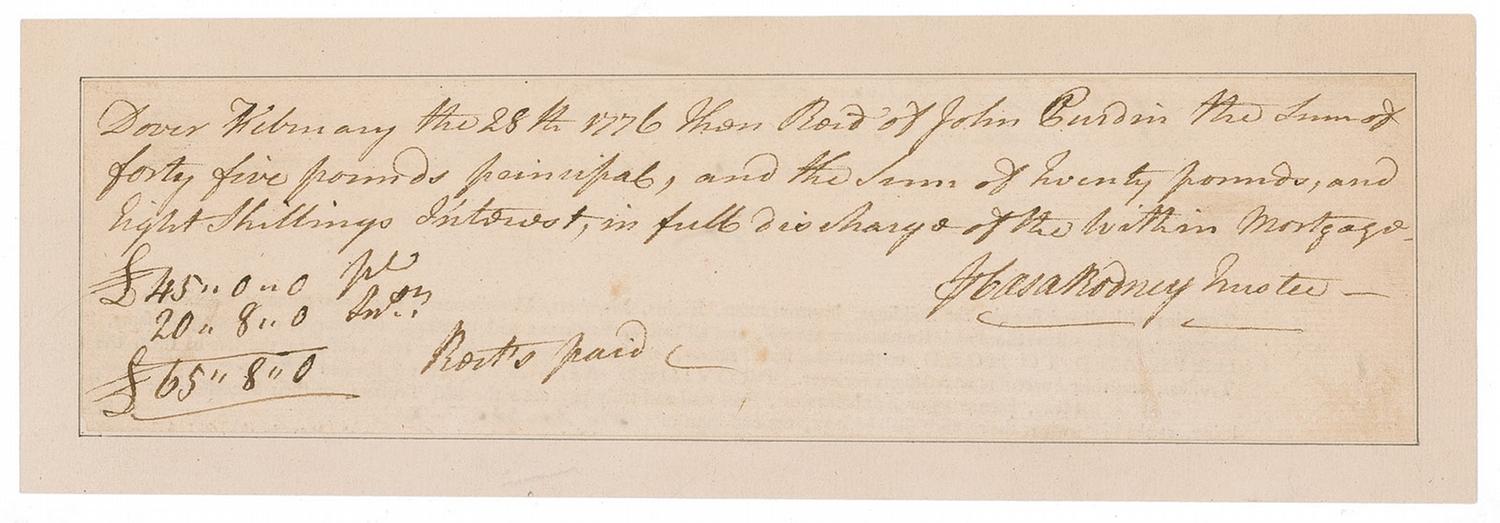 Dover February the 28th 1776 then Recd of John Purdin the Sum of
forty five pounds principal, and the Sum of twenty pounds, and
Eight Shillings Interest, in full discharge of the within Mortgage
£ 45 " 0 " 0 pl
20 " 8 " 0 Int
£ 65 " 8 " 0
Caesar Rodney Trustee
Rect's paid